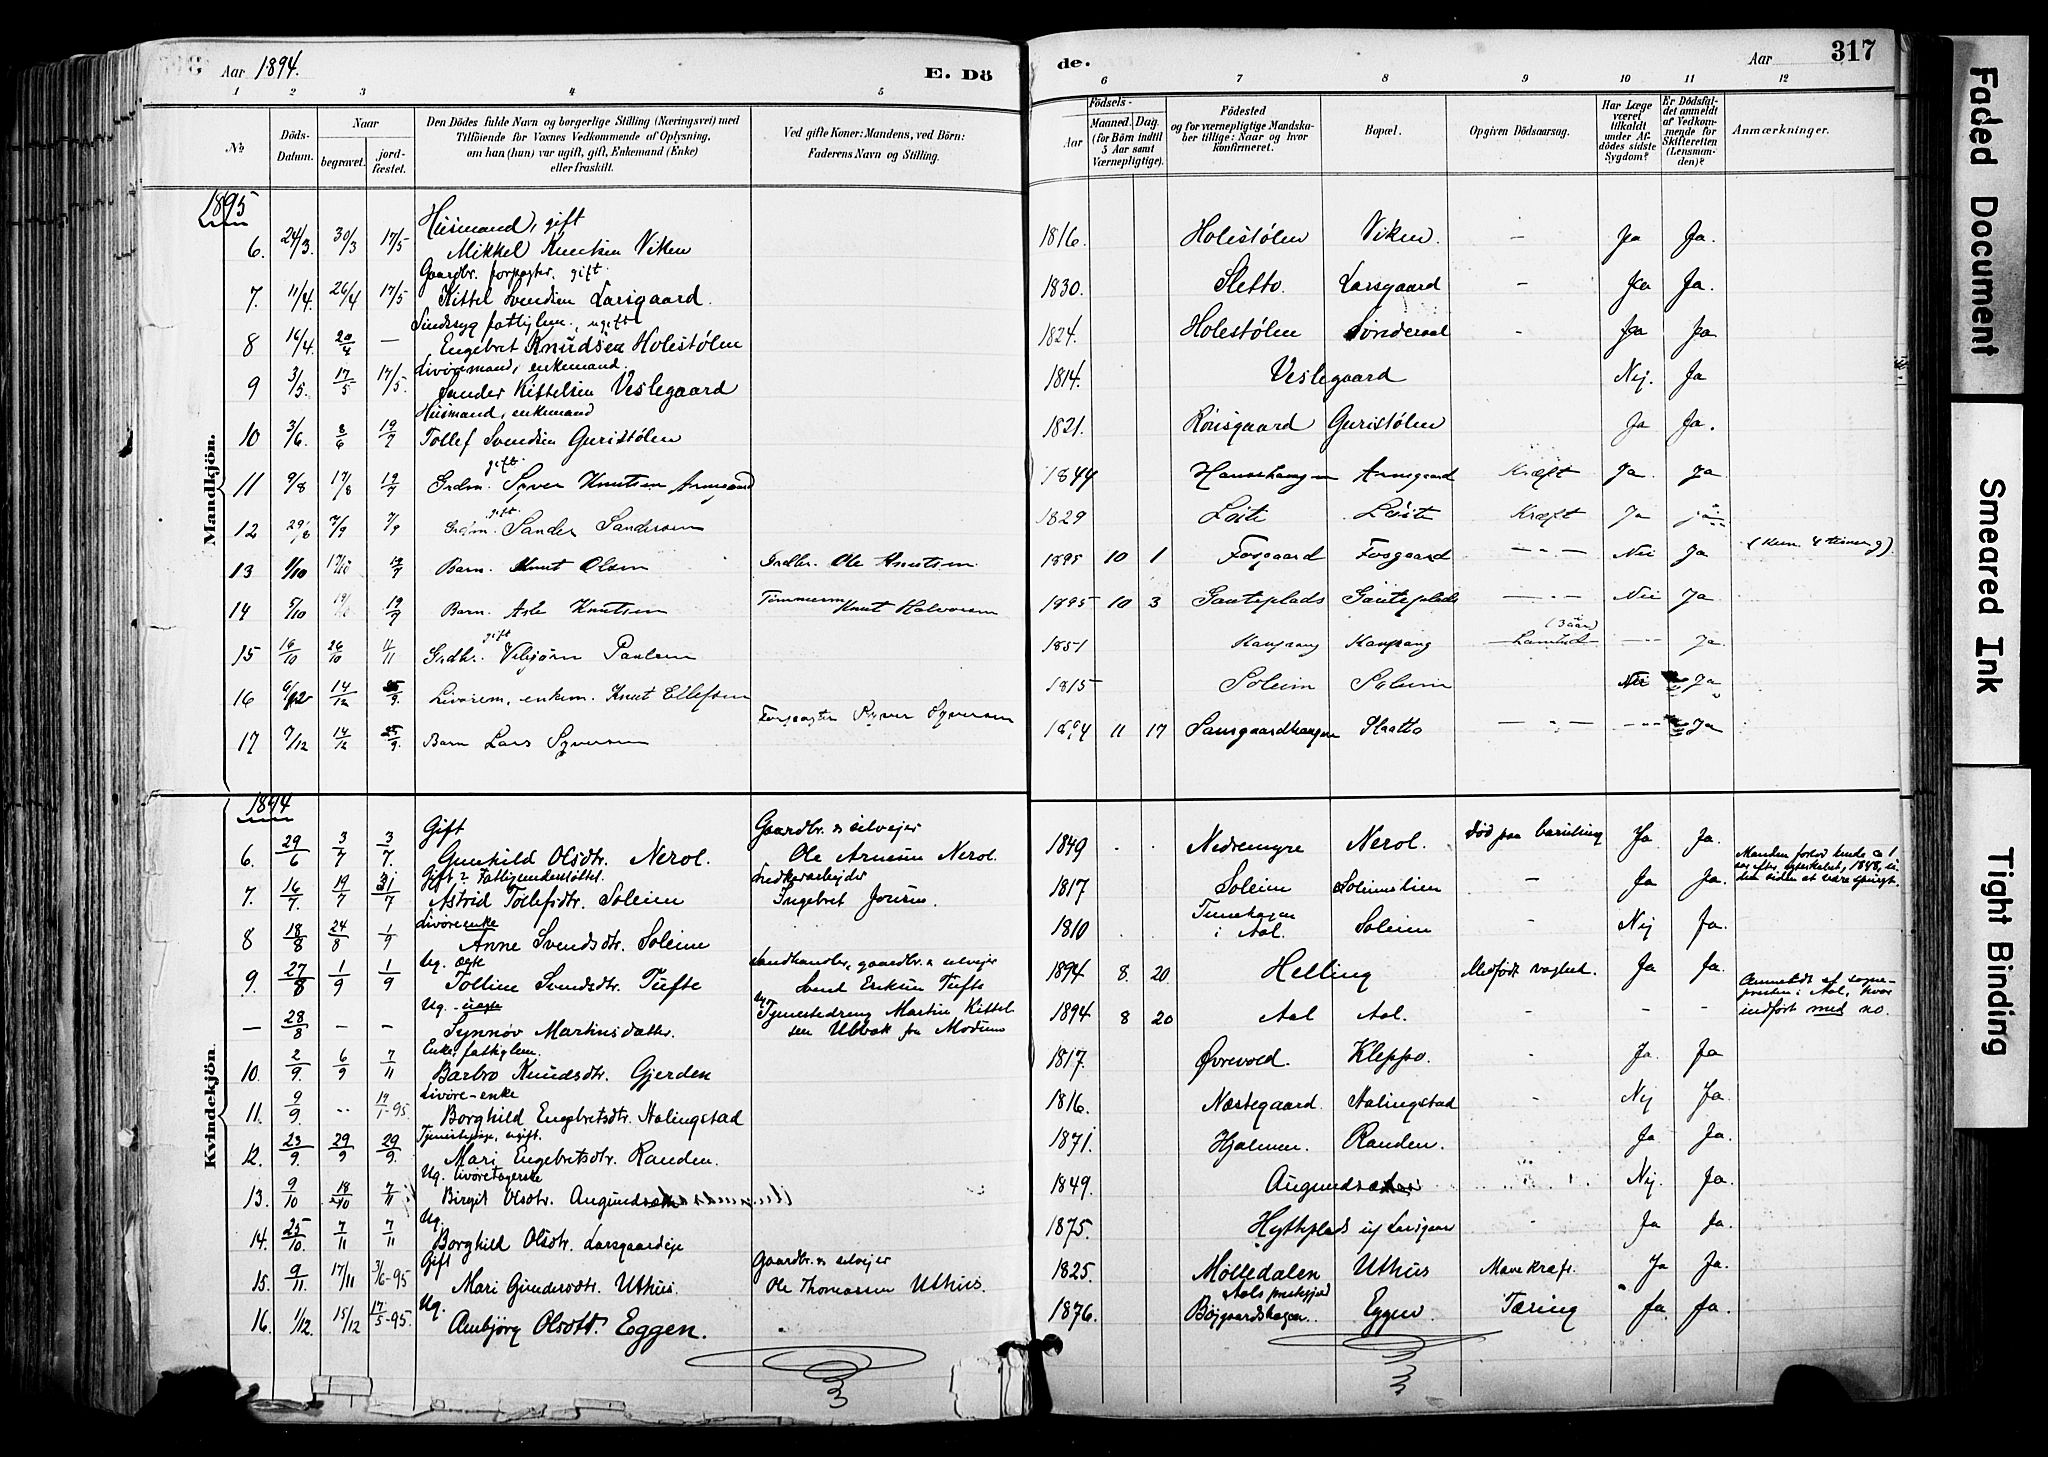 Aar 1894.
E. Dö
de.
Aar
317
1 2 3 4 5 6 7 8 9 10 11 12
No
Döds-Datum.
Naar
begravet.
jord-fæstet.
Den Dödes fulde Navn og borgerlige Stilling (Næringsvei) med
Tilföiende for Voxnes Vedkommende af Oplysning,
om han (hun) var ugift, gift, Enkemand (Enke)
eller fraskilt.
Ved gifte Koner: Mandens, ved Börn:
Faderens Navn og Stilling.
Födsels-
Aar
Maaned. Dag.
(for Börn indtil
5 Aar samt
Værnepligtige).
Födested
og for værnepligtige Mandska-
ber tillige: Naar og hvor
konfirmeret.
Bopæl.
Opgiven Dödsaarsag.
Har Læge
været
tilkaldt
under Af-
dödes sidste
Sygdom?
Er Dödsfal-
det anmeldt
af Vedkom-
mende for
Skifteretten
(Lensman-
den)?
Anmærkninger.
Mandkjön.
1895
Husmand, gift
6. 24/3. 30/3 17/5 Mikkel Knutsen Viken 1816. Holestølen Viken. - Ja Ja.
Gaardbr. forpagter. gift.
7. 11/4. 26/4 17/5 Kittel Svendsen Larsgaard. 1830. Sletto. Larsgaard - Ja Ja.
Sindssyg fattiglem., ugift
8 16/4. 20/4 — Engebret Knudsen Holestølen 1824. Holestølen Sønderaal - Ja Ja
Livøremand, enkemand.
9 3/5. 17/5 17/5. Sander Kittelsen Veslegaard 1814. Veslegaard Nej. Ja
Husmand, enkemand
10 3/6. 8/6 19/7 Tollef Svendsen Guristølen 1821. Rønsgaard Guristølen Ja Ja.
gift.
11 9/8 17/8 19/7 Grdm. Syver Knutsen Arnegaard 1844 Haugen Arnegaard Kræft Ja. Ja
gift
12 29/8 7/9 7/9 Grdm. Sander Sandersen 1829 Løite Løite Kræft Ja
13 1/10 17/10 19/7 Barn. Knut Olsen Grdbr. Ole Knutsen 1895 10 1 Fosgaard Fosgaard — Nei Ja
14 5/10 19/7 Barn. Asle Knutsen Tømmerm Knut Halvorsen 1895 10 3 Gauteplads Gauteplads — Nei Ja
gift (3 aar)
15 16/10 26/10 11/11 Grdbr. Vebjørn Paulsen 1851 Lamhed Ja
16 6/12 14/12 25/9. Livørem, enkem. Knut Ellefsen 1815 Soleim Soleim Nei Ja
17 7/12 14/12 25/9. Barn Lars Syversen Forpagter Syver Syversen 1894 11 17 Sansgaardhaugen Plaatto — Ja
Kvindekjön.
1894
Gift Gaardbr. & selvejer
6. 29/6 3/7 3/7. Gunhild Olsdtr. Nerol. Ole Arnesen Nerol. 1849 Nedremyre Nerol. Død paa barseseng Ja Ja.
Gift? Fattigunderstøttet. Snedkerarbejder
7. 16/7 19/7 31/7 Astrid Tollefsdtr. Soleim Ingebret 1817 Soleim Soleimslien - Ja Ja.
Livøreenke
8 18/8 24/8 1/9 Anne Svendsdtr. Soleim 1810 i Aal. Soleim - Nej Ja.
Ug. ægte Landhandler, gaardbr. & selvejer
9. 27/8 1/9 1/9 Tolline Svendsdtr. Tufte Svend Eriksen Tufte 1894 8. 20. Helling Medfødt svaghed. Ja Ja.
Ug. uægte Tjenestedreng Martin Kittel
— 28/8 — — Synnøv Martinsdatter. sen Ulbak fra Modum 1894 8 20 Aal Aal. - - - indført med no.
Enke, fattiglem.
10. 2/9. 6/9 7/11 Barbro Knudsdtr. Gjerden 1817. Øvrevold Kleppo. - Ja Ja
Livøre-enke
11. 9/9. .. 19/1-95. Borghild Engebretsdtr. Aalingstad 1816. Næstegaard. Aalingstad - Nej Ja.
Tjenestepige, ugift.
12. 23/9. 29/9 29/9. Mari Engebretsdtr. Randen. 1871. Hjalmen Randen. - Ja Ja.
Ug. livøretagerske
13. 9/10 18/10 7/11 Birgit Olsdtr. 1849. Nej. Ja.
Ug.
14. 25/10. 7/11 7/11 Borghild Olsdtr. Larsgaardeje 1875. Ja Ja.
Gift Gaardbr. & selvejer
15. 9/11. 17/11 3/6-95 Mari Gundersdtr. Uthus. Ole Thomassen Uthus. 1825. Mølledalen Uthus Mavekræft. Ja Ja.
Ug. Aals prestegjeld
16. 1/12. 15/12 17/5-95. Ambjørg Olsdtr. Eggen. 1876. Bøjgaardshagen. Eggen. Tæring Ja Ja.
Faded Document
Smeared Ink
Tight Binding